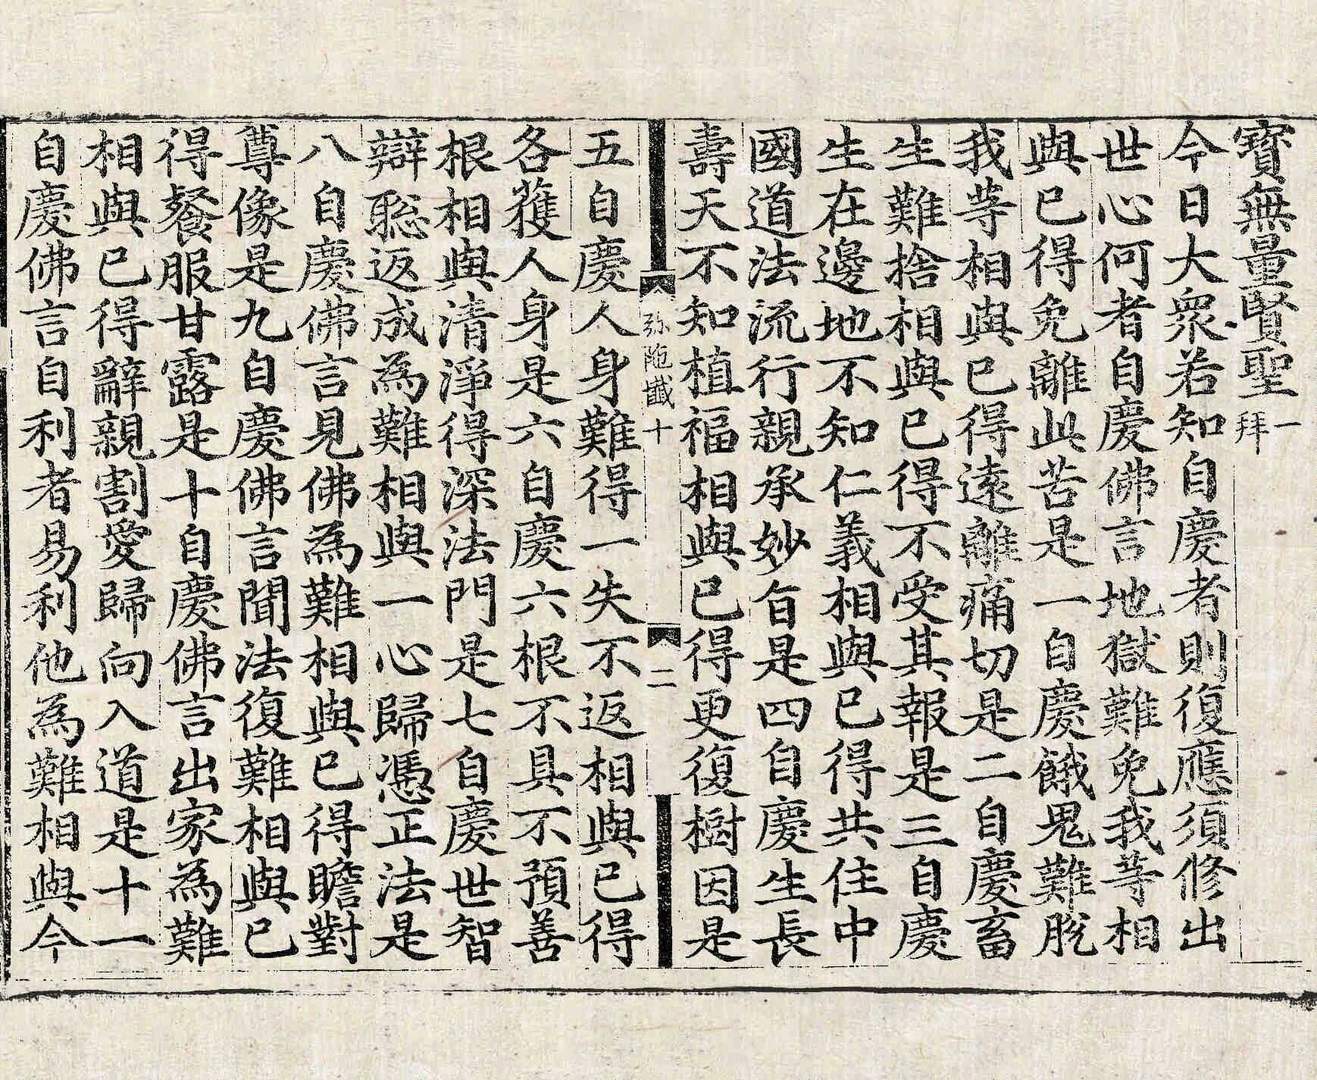 寶無量賢聖一拜
今日大衆若知自慶者則復應須修出
世心何者自慶佛言地獄難免我等相
與已得免離此苦是一自慶餓鬼難脫
我等相與已得遠離痛切是二自慶畜
生難捨相與已得不受其報是三自慶
生在邊地不知仁義相與已得共住中
國道法流行親承妙旨是四自慶生長
壽天不知植福相與已得更復樹因是
弥陁懺十 二
五自慶人身難得一失不返相與已得
各獲人身是六自慶六根不具不預善
根相與清淨得深法門是七自慶世智
辯聡返成為難相與一心歸憑正法是
八自慶佛言見佛為難相與已得瞻對
尊像是九自慶佛言聞法復難相與已
得餐服甘露是十自慶佛言出家為難
相與已得辭親割愛歸向入道是十一
自慶佛言自利者易利他為難相與今